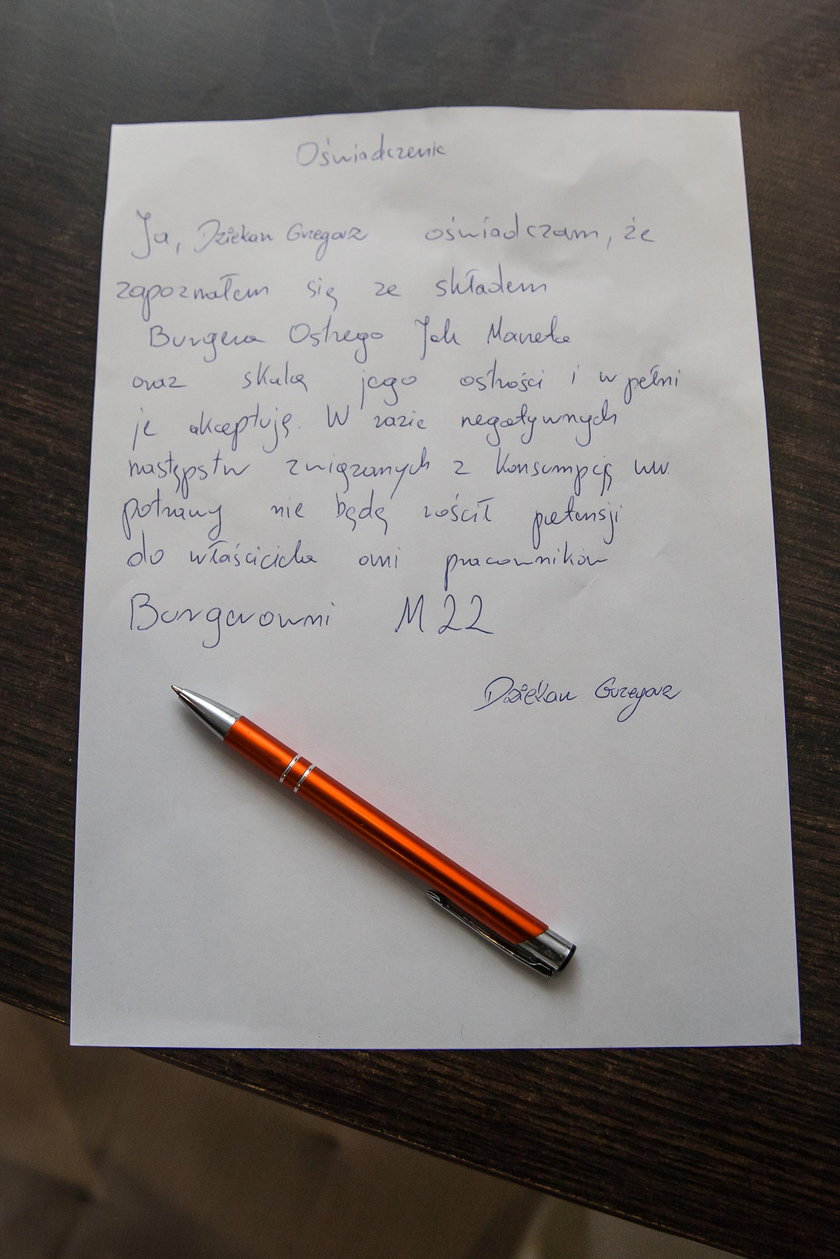 Oświadczenie
Ja, Dziekan Grzegorz oświadczam, że
zapoznałem się ze składem
Burgera Ostrego Jak Maneta
oraz skalą jego ostrości i w pełni
je akceptuję. W razie negatywnych
następstw związanych z konsumpcją ww.
potrawy nie będę rościł pretensji
do właściciela ani pracowników
Burgerowni M22
Dziekan Grzegorz